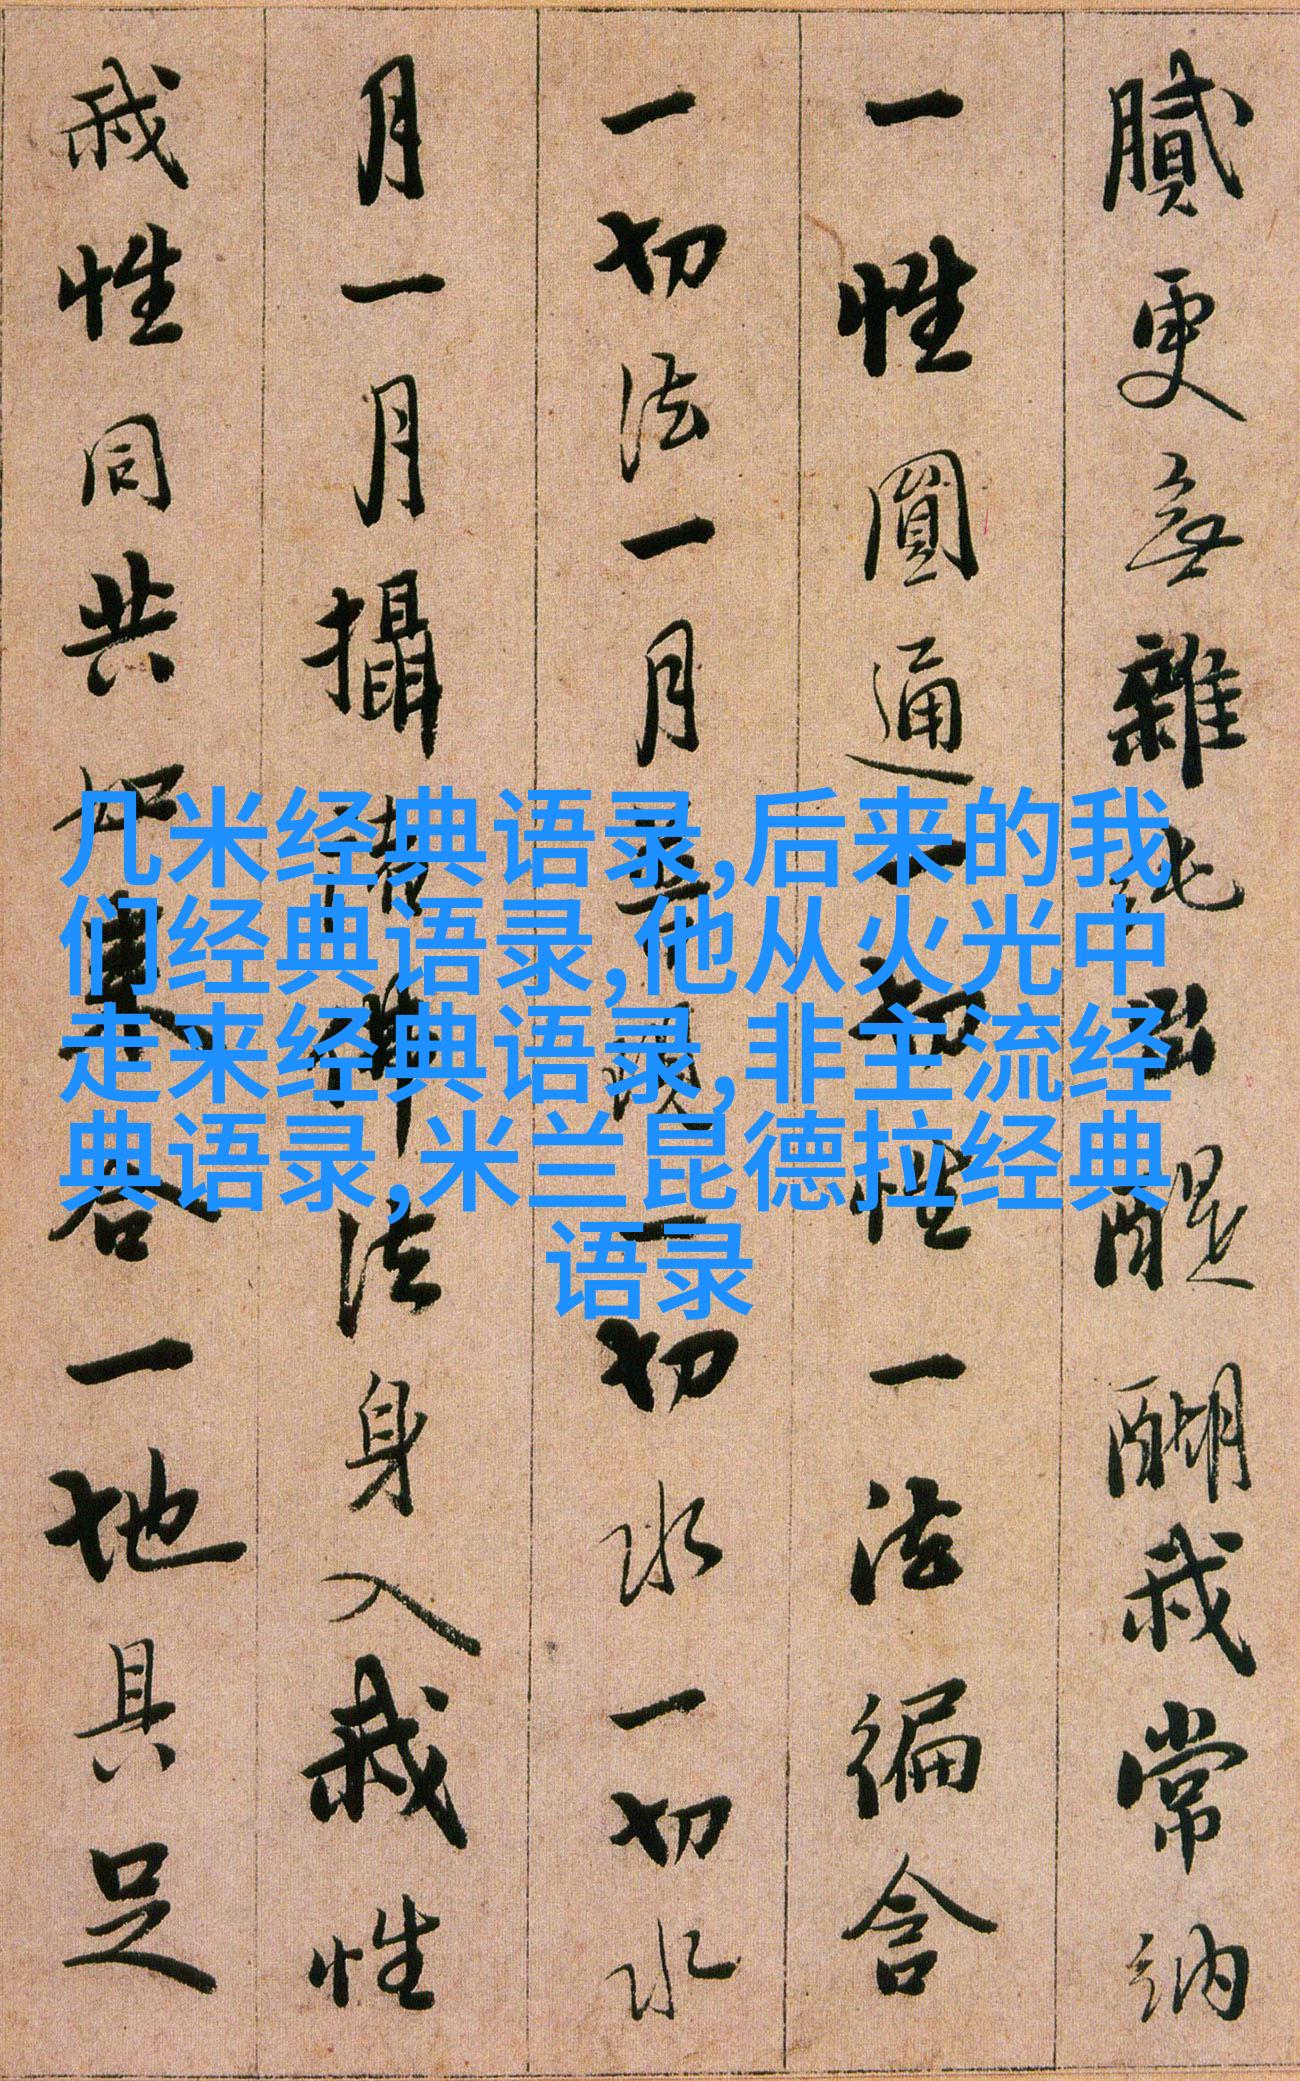 膩更無雜純出醍醐我常納
一性圓通一切性一法徧含
一切法一月普現一切水一切水
月一月攝諸佛法身入我性
我性同共如來合一地具足
几米经典语录,后来的我
们经典语录,他从火光中
走来经典语录,非主流经
典语录,米兰昆德拉经典
语录